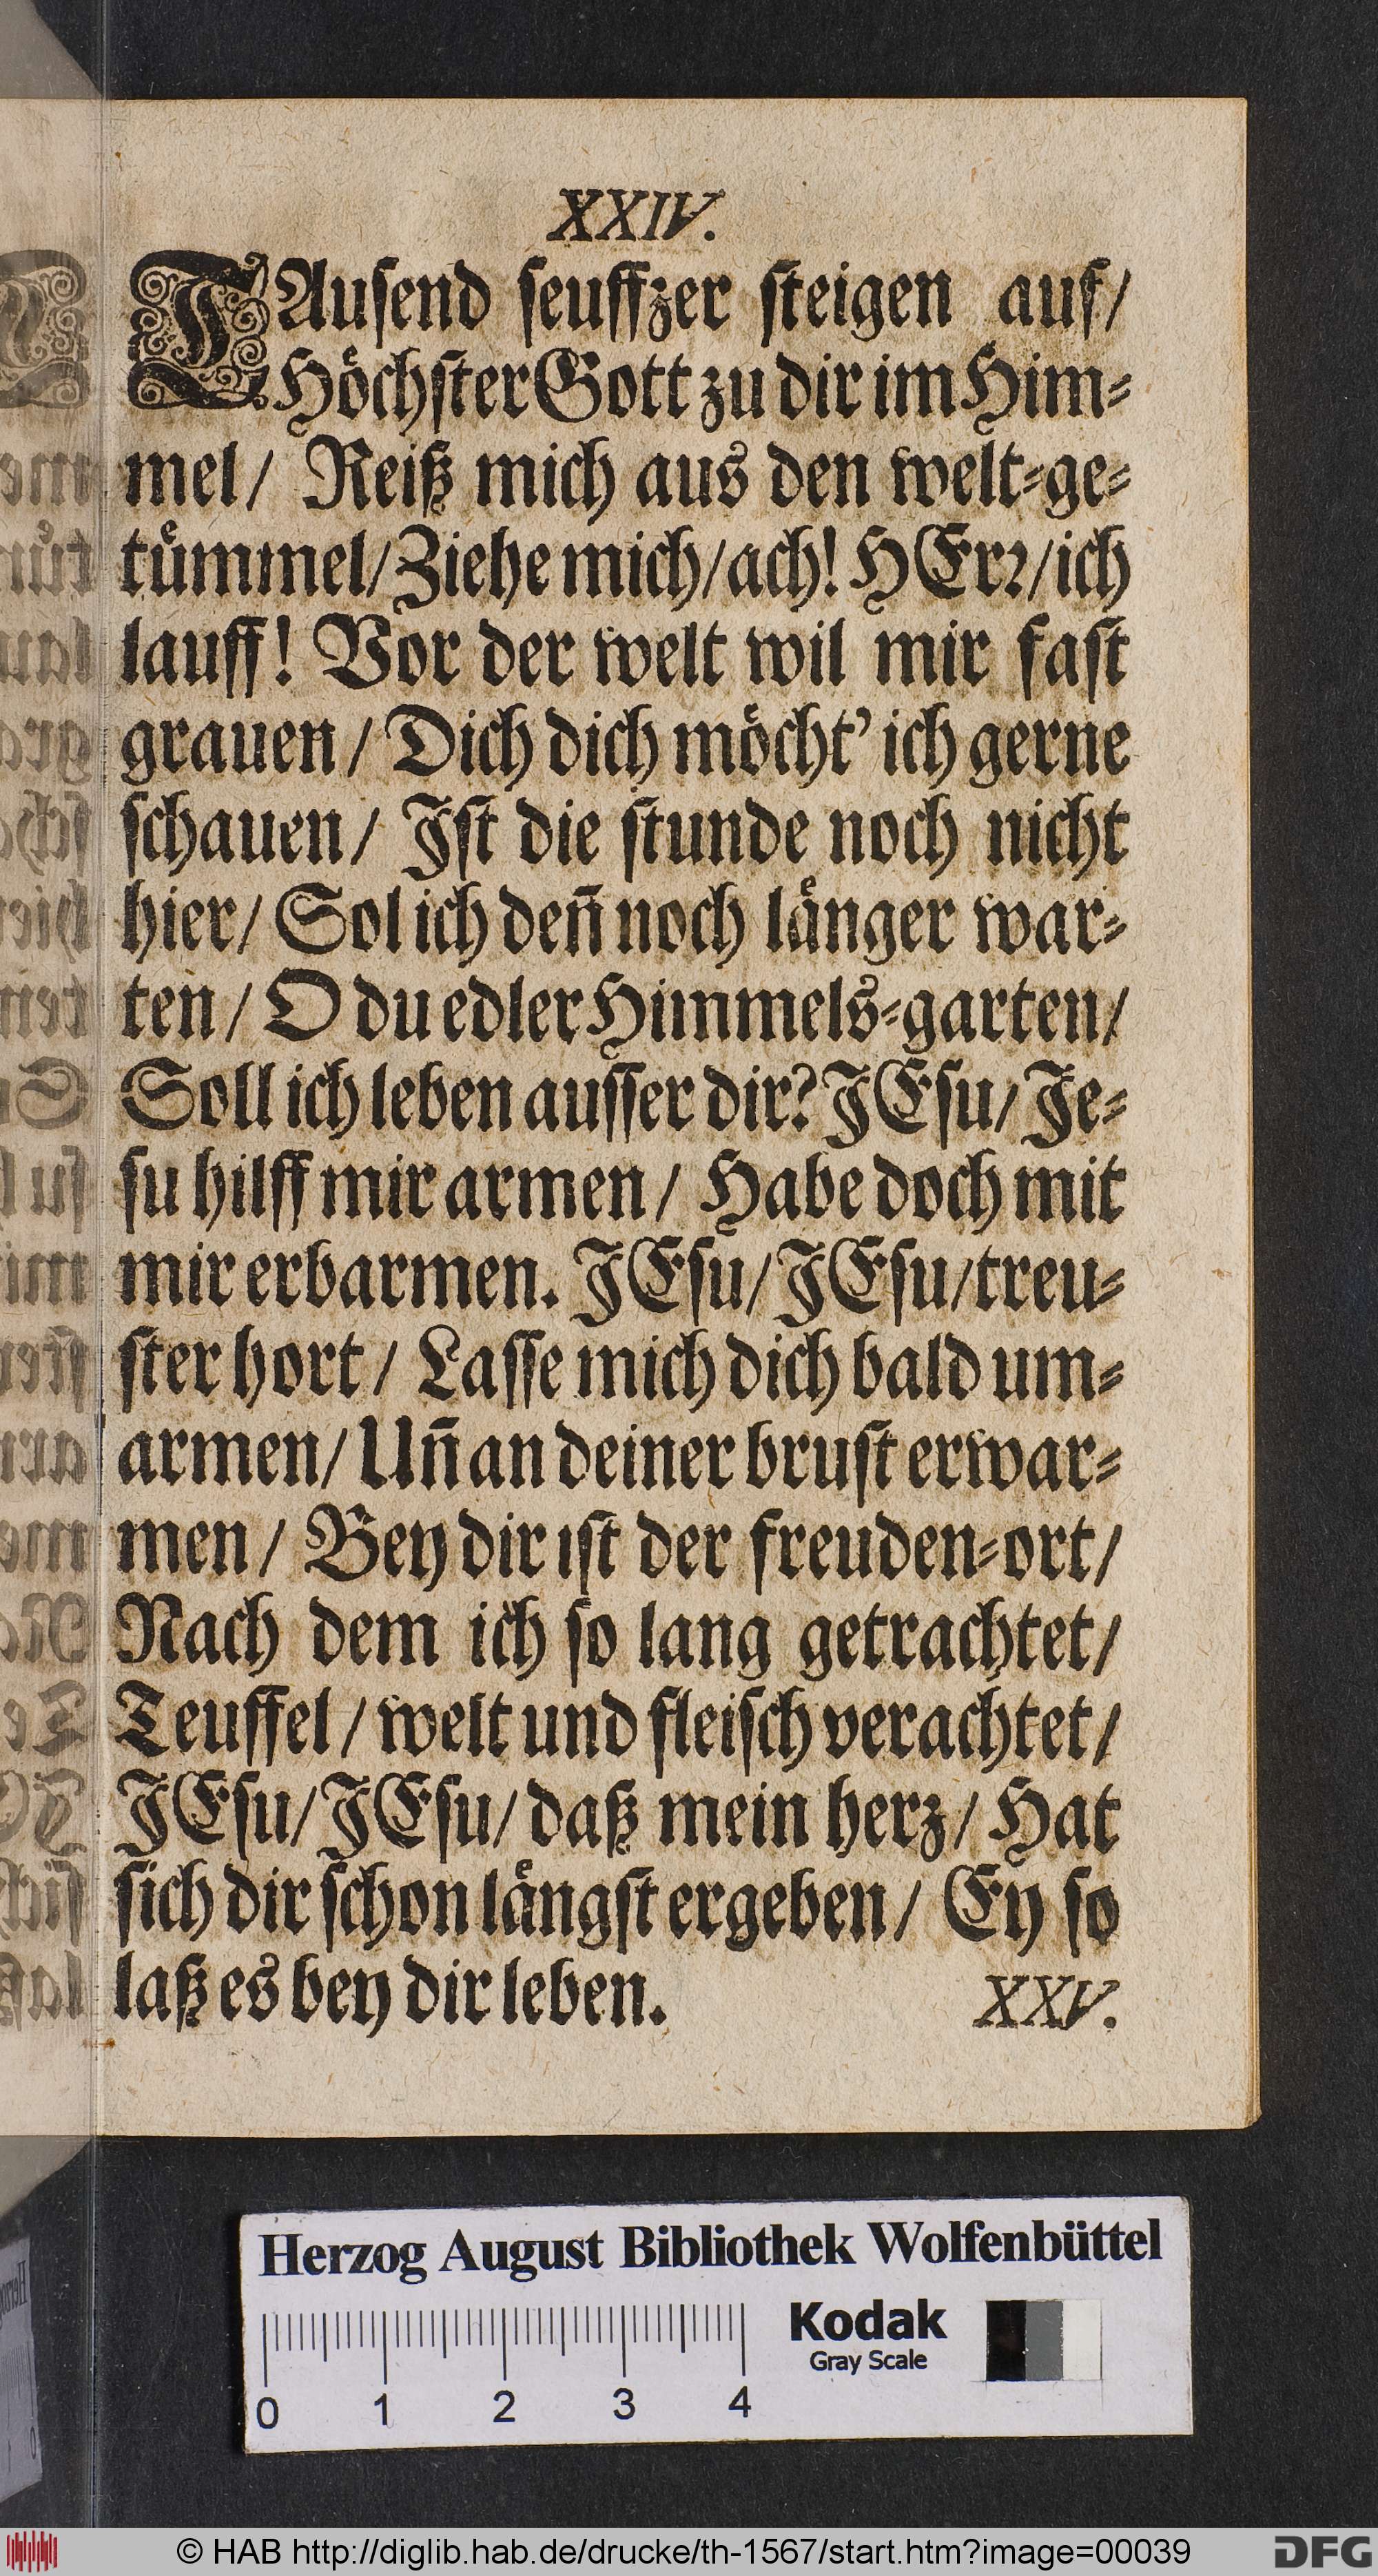 XXIV.
TAuſend ſeuffzer ſteigen auf/
Hoͤchſter Gott zu dir im Him⸗
mel/ Reiß mich aus den welt⸗ge⸗
tuͤmmel/ Ziehe mich/ ach! HErꝛ/ ich
lauff! Vor der welt wil mir faſt
grauen/ Dich dich moͤcht' ich gerne
ſchauen/ Iſt die ſtunde noch nicht
hier/ Sol ich deñ noch laͤnger war⸗
ten/ O du edler Himmels⸗garten/
Soll ich leben auſſer dir? JEſu/ Je⸗
ſu hilff mir armen/ Habe doch mit
mir erbarmen. JEſu/ JEſu/ treu⸗
ſter hort/ Laſſe mich dich bald um⸗
armen/ Uñ an deiner bruſt erwar⸗
men/ Bey dir iſt der freuden⸗ort/
Nach dem ich ſo lang getrachtet/
Teuffel/ welt und fleiſch verachtet/
JEſu/ JEſu/ daß mein herz/ Hat
ſich dir ſchon laͤngſt ergeben/ Ey ſo
laß es bey dir leben. XXV.
Herzog August Bibliothek Wolfenbüttel
Kodak
Gray Scale
0 1 2 3 4
© HAB http://diglib.hab.de/drucke/th-1567/start.htm?image=00039
DFG